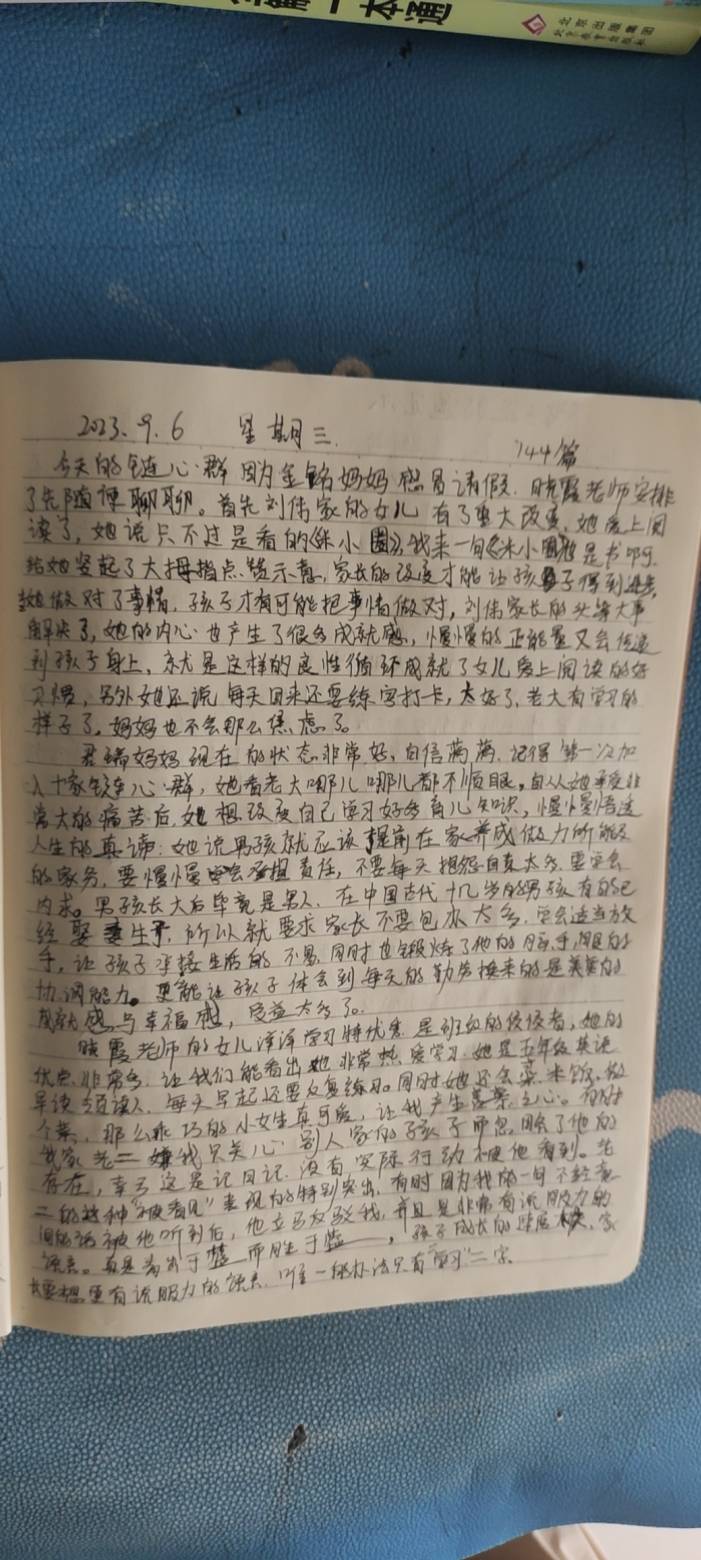 一本通
北京出版集团
北京教育出版社
2023.9.6 星期三
744篇
今天的链心群因为金铭妈妈临员请假.晓霞老师安排
了先随便聊聊。首先刘伟家的女儿有了重大改变,她爱上阅
读了,她说只不过是看的《米小圈》,我来一句《米小圈》也是书啊.
给她竖起了大拇指点赞示意,家长的改变才能让孩子得到进步
她做对了事情,孩子才有可能把事情做对,刘伟家长的头等大事
解决了,她的内心也产生了很多成就感,慢慢的正能量又会传递
到孩子身上,就是这样的良性循环成就了女儿爱上阅读的好
习惯,另外她还说每天回来还要练字打卡,太好了,老大有学习的
样子了,妈妈也不会那么焦虑了。
君瑞妈妈现在的状态非常好,自信满满.记得第一次加
入十家链心群,她看老大哪儿哪儿都不顺眼,自从她承受非
常大的痛苦后,她想改变自己学习好多育儿知识,慢慢悟透
人生的真谛.她说男孩就应该提前在家养成做力所能及
的家务,要慢慢学会承担责任,不要每天抱怨自责太多.要学会
内求。男孩长大后毕竟是男人.在中国古代十几岁的男孩有的已
经娶妻生子,所以就要求家长不要包办太多,学会适当放
手,让孩子承接生活的不易.同时也锻炼了他的手,眼的
协调能力。更能让孩子体会到每天的勤劳换来的是美美的
成就感与幸福感,受益太多了。
晓霞老师的女儿洋洋学习特优秀.是班级的佼佼者,她的
优点非常多.让我们能看出她非常热爱学习.她是五年级英语
早读领读人.每天早起还要反复练习.同时她还会蒸米饭.做
个菜.那么乖巧的小女生真可爱,让我产生羡慕之心。有时
我家老二嫌我只关心别人家的孩子而忽略了他的
存在,幸亏这是记日记.没有实际行动被他看到。老
二的这种"被看见"表现的特别突出.有时因为我的一句不经意
间的话被他听到后,他立马反驳我,并且是非常有说服力的
。真是青出于蓝而胜于蓝,孩子成长的速度快,家
长要想更有说服力的,唯一的办法只有"学习"二字.